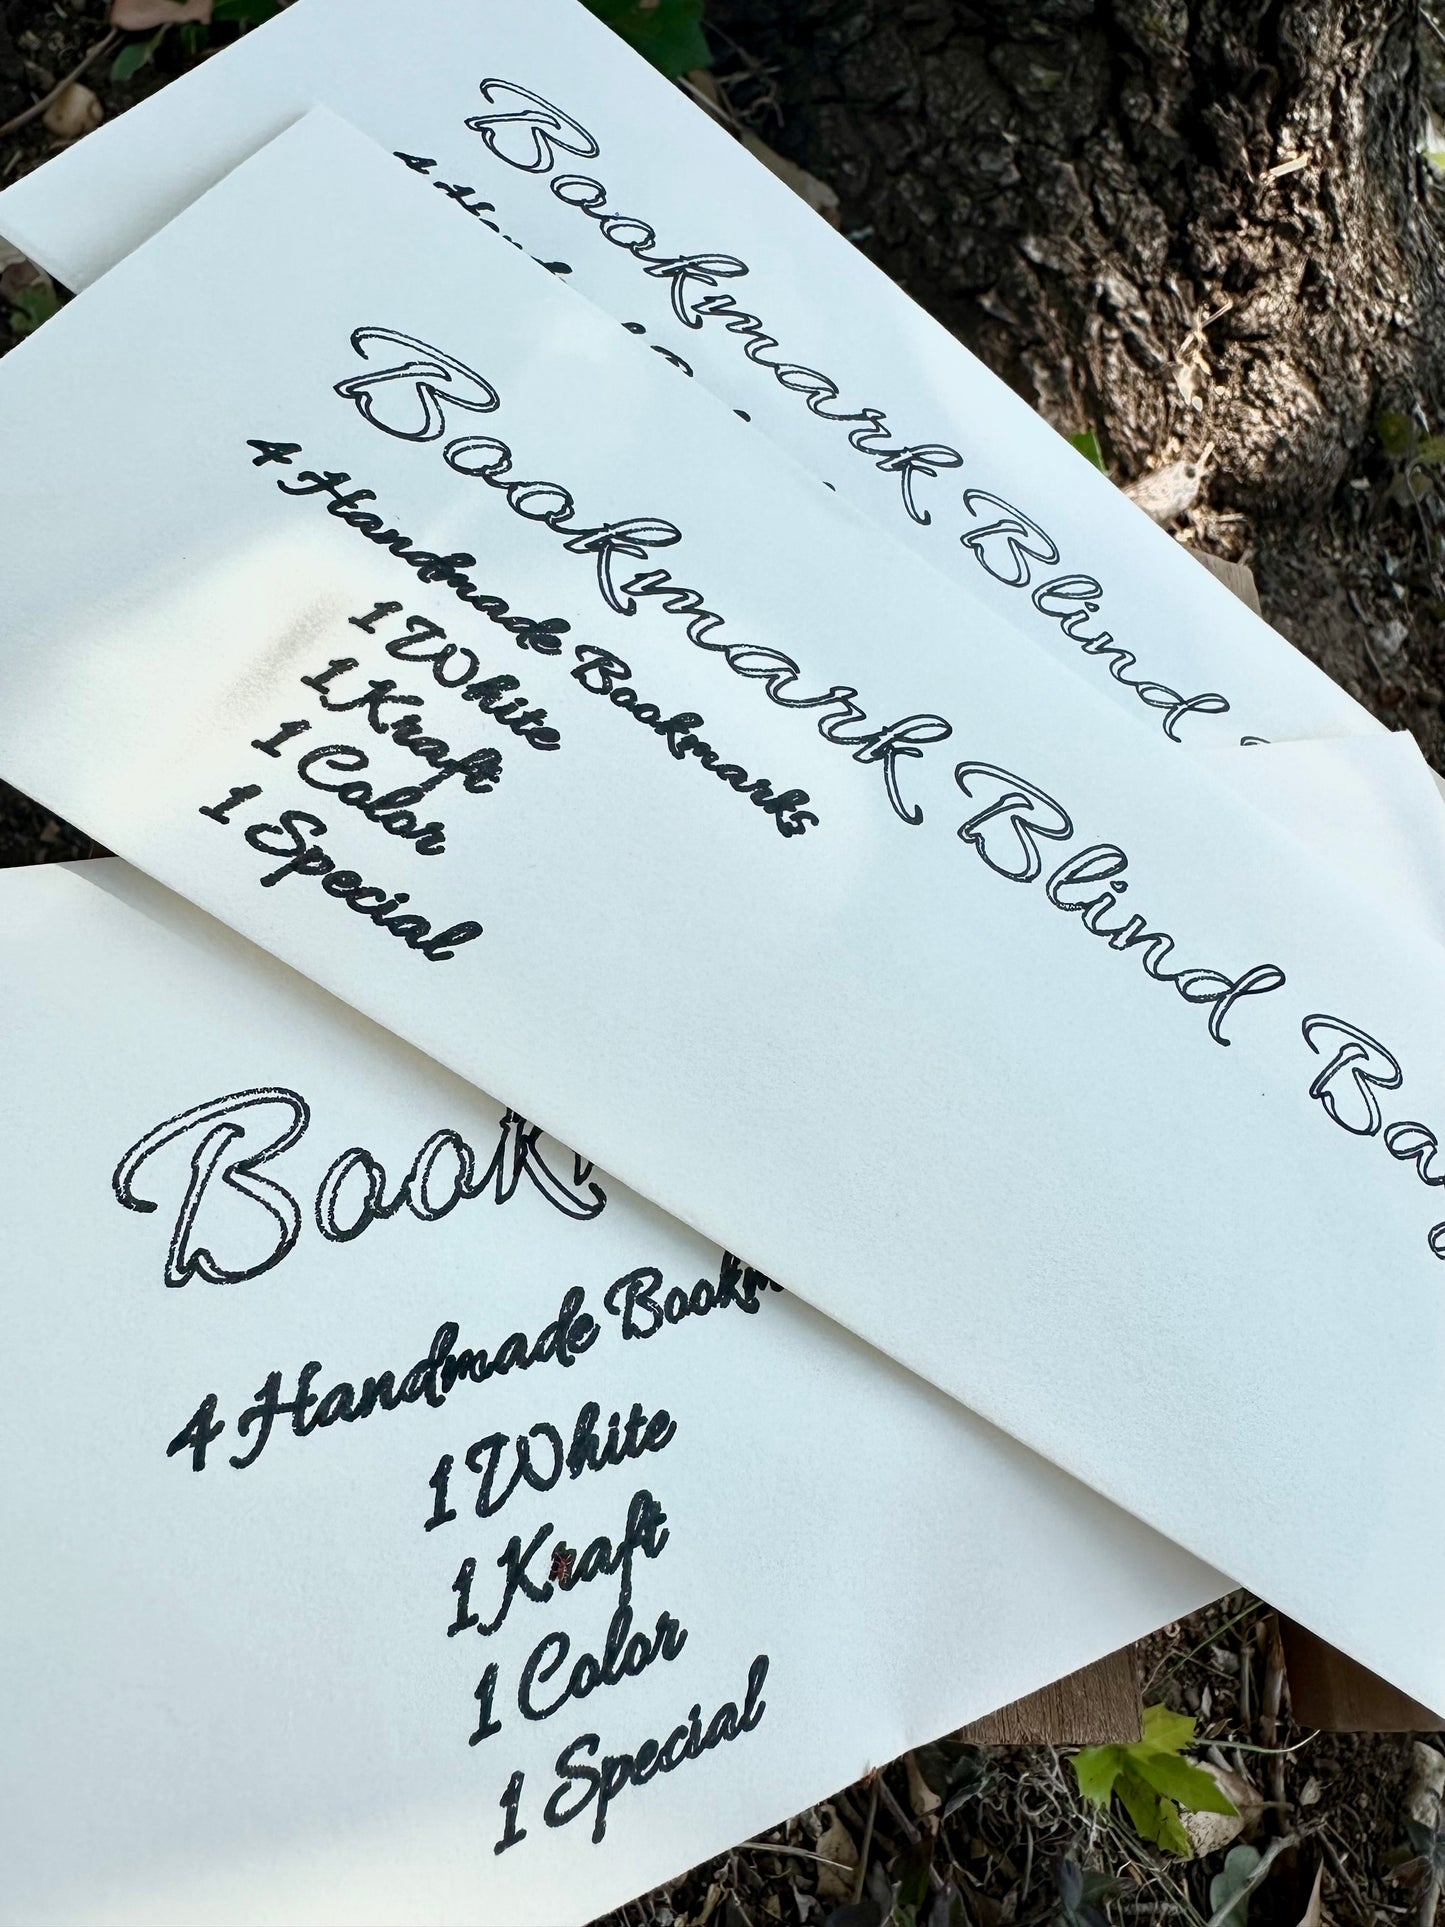 Bookmark Blind
4
Bookmark Blind Bag
4 Handmade Bookmarks
1 White
1 Kraft
1 Color
1 Special
Book
4 Handmade Bookm
1 White
1 Kraft
1 Color
1 Special